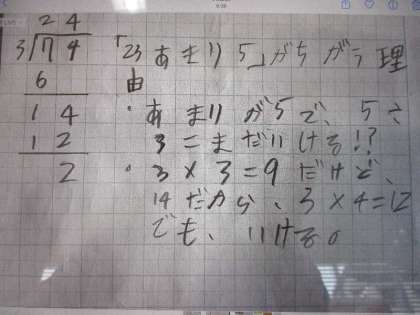 24
3)74
6
14
12
2
「23あまり5」がちがう理
由
・あまりが5で、5÷
3=まだいける!?
・3×3=9だけど、
14だから、3×4=12
でも、いける。